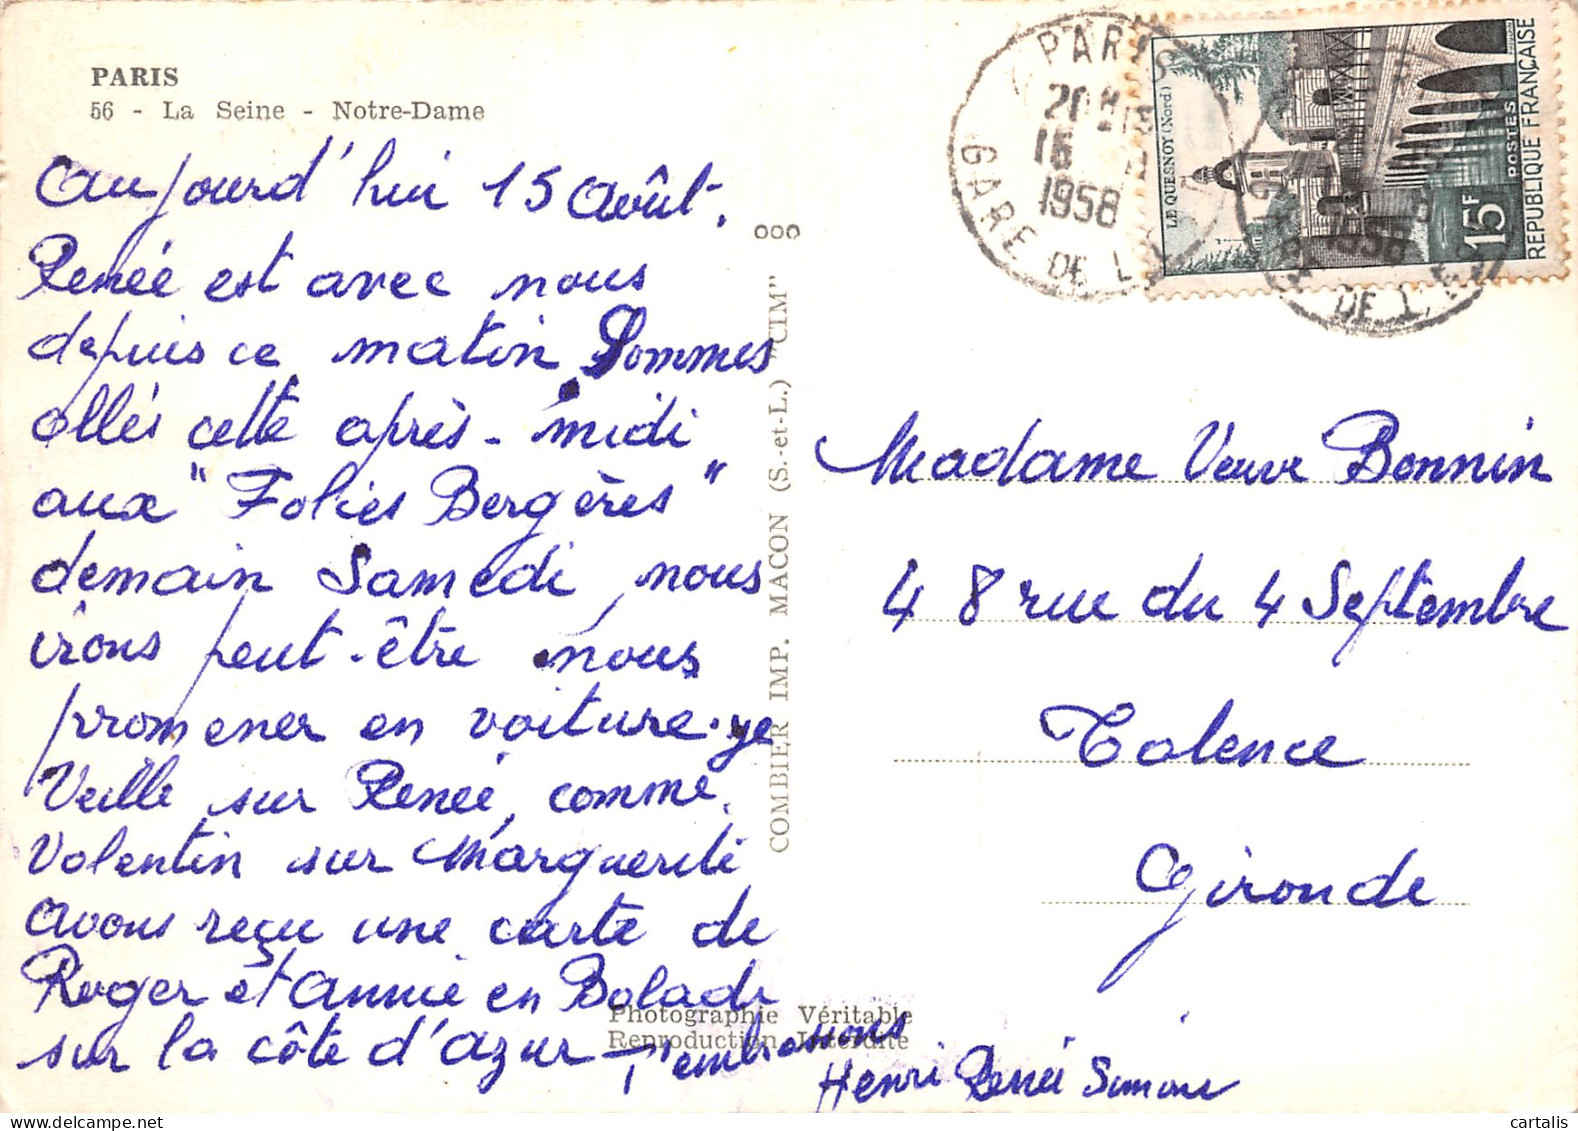 PARIS
56 - La Seine - Notre-Dame
Aujourd'hui 15 Août.
Renée est avec nous
depuis ce matin Sommes
allés cette après-midi
aux "Folies Bergères"
demain Samedi, nous
irons peut-être nous
promener en voiture. ye
Veille sur Renée, comme
Valentin sur Marguerite
avons reçu une carte de
Roger et Annie en Balade
sur la côte d'azur - T'embrassons
Henri Renée Simone
COMBIER IMP. MACON (S.-et-L.) "CIM"
Photographie Véritable
Reproduction Interdite
PARIS
16
1958
GARE DE L
DE L
LE QUESNOY (Nord)
15F
POSTES
REPUBLIQUE FRANÇAISE
Madame Veuve Bonnin
48 rue du 4 Septembre
Talence
Gironde
cartalis.com